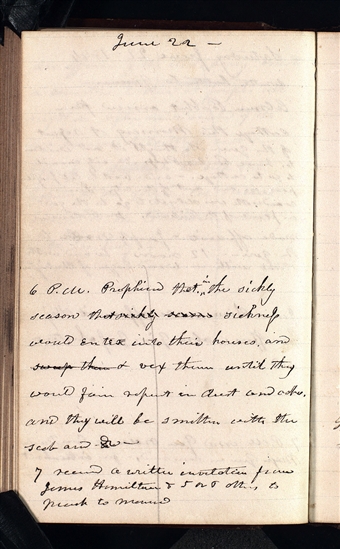 June 22 —
6 P.M. Prophised that in the sickly
season that sickly season sickness
would enter into their houses, and
sweep them & vex them until they
would fain repent in dust and ashes,
and they will be smitten with the
scab and &c —
7 received a written invitation from
James Hamilton & 5 or 6 others to
preach to